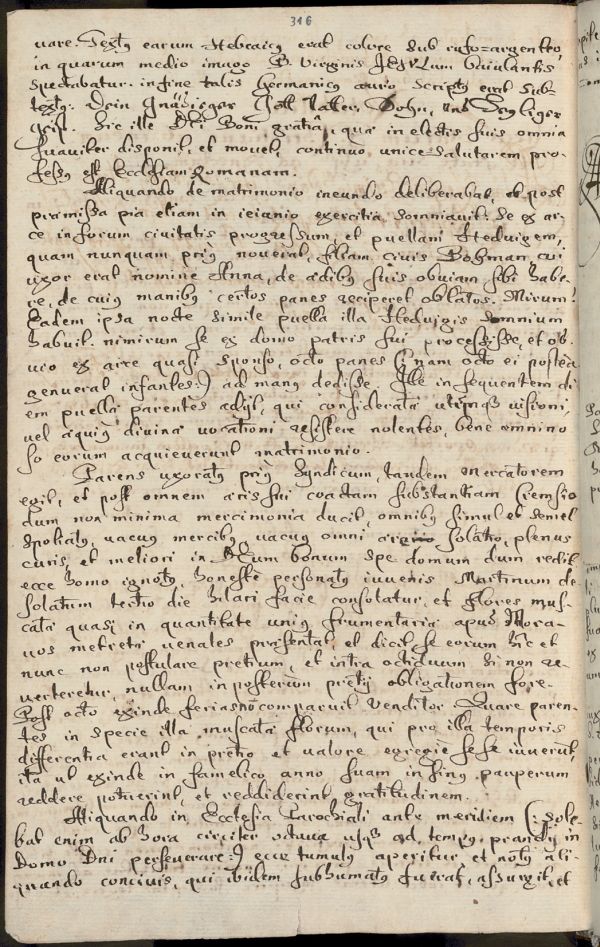 316
vare. Textq earum Hebraicq erat colore sub rufo=argenteo
in quarum medio imago B. Virginis JESVLum baiulantis
spectabatur. in fine talis Germanicq auro scriptq erat sub
textq: Dein Gnädiger Gott Vatter, Sohn, und Heyliger
geist. Sic ille Dei Boni gratiâ, qua in electis suis omnia
suaviter disponit, et movet, continuo unice salutarem pro-
fessq est Ecclesiam Romanam.
Aliquando de matrimonio ineundo deliberabat, et post
praemissa pia etiam in ieiunio exercitia somniavit. Se ex ar-
ce in forum civitatis progressum, et puellam Hedvigem,
quam nunquam priq noverat, filiam civis Bohman cui
uxor erat nomine Anna, de aedibq suis obviam sibi habe-
re, de cuiq manibq certos panes reciperet oblatos. Mirum!
Eadem ipsa nocte simile puella illa Hedvigis somnium
habuit. nimirum se ex domo patris sui processisse, et ob-
vio ex arce quasi sponso, octo panes (: nam octo ei postea
genuerat infantes :) ad manq dedisse. Ille in sequentem di-
em puellae parentes adijt, qui considerata utriusqs visione,
vel aequiq divinae vocationi resistere nolentes, bene omnino
so eorum acquieverunt matrimonio.
Parens uxoratq priq Syndicum, tandem mercatorem
egit, et post omnem aeris sui coactam substantiam
dum non minima mercimonia ducit, omnibq simul et semel
spoliatq, vacuq mercibq, vacuq omni solatio, plenus
curis, et meliori in DEum bonum spe domum dum redit
ecce homo ignotq, honeste personatq iuvenis Martinum de-
solatum tertio die hilari facie consolatur, et flores mus-
catae quasi in quantitate uniq frumentaria apud Mora-
vos metretae venales praesentat, et dicit se eorum hic et
nunc non postulare pretium, et intra octiduum si non re-
verteretur, nullam in posterum pretij obligationem fore.
Post octo exinde ferias non comparuit venditor. Quare paren-
tes in specie illa muscatae florum, qui pro illa temporis
differentia erant in pretio et valore egregie se se iuverunt,
ita ut exinde in famelico anno suam in sinq pauperum
reddere potuerint, et reddiderint gratitudinem.
Aliquando in Ecclesia Parochiali ante meridiem (: sole-
bat enim ab hora circiter octava usqs ad tempq prandij in
Domo Dni perseverare :) ecce tumulq aperitur, et notq ali-
quando concivis, qui ibidem subhumatq fuerat, assurgit, et